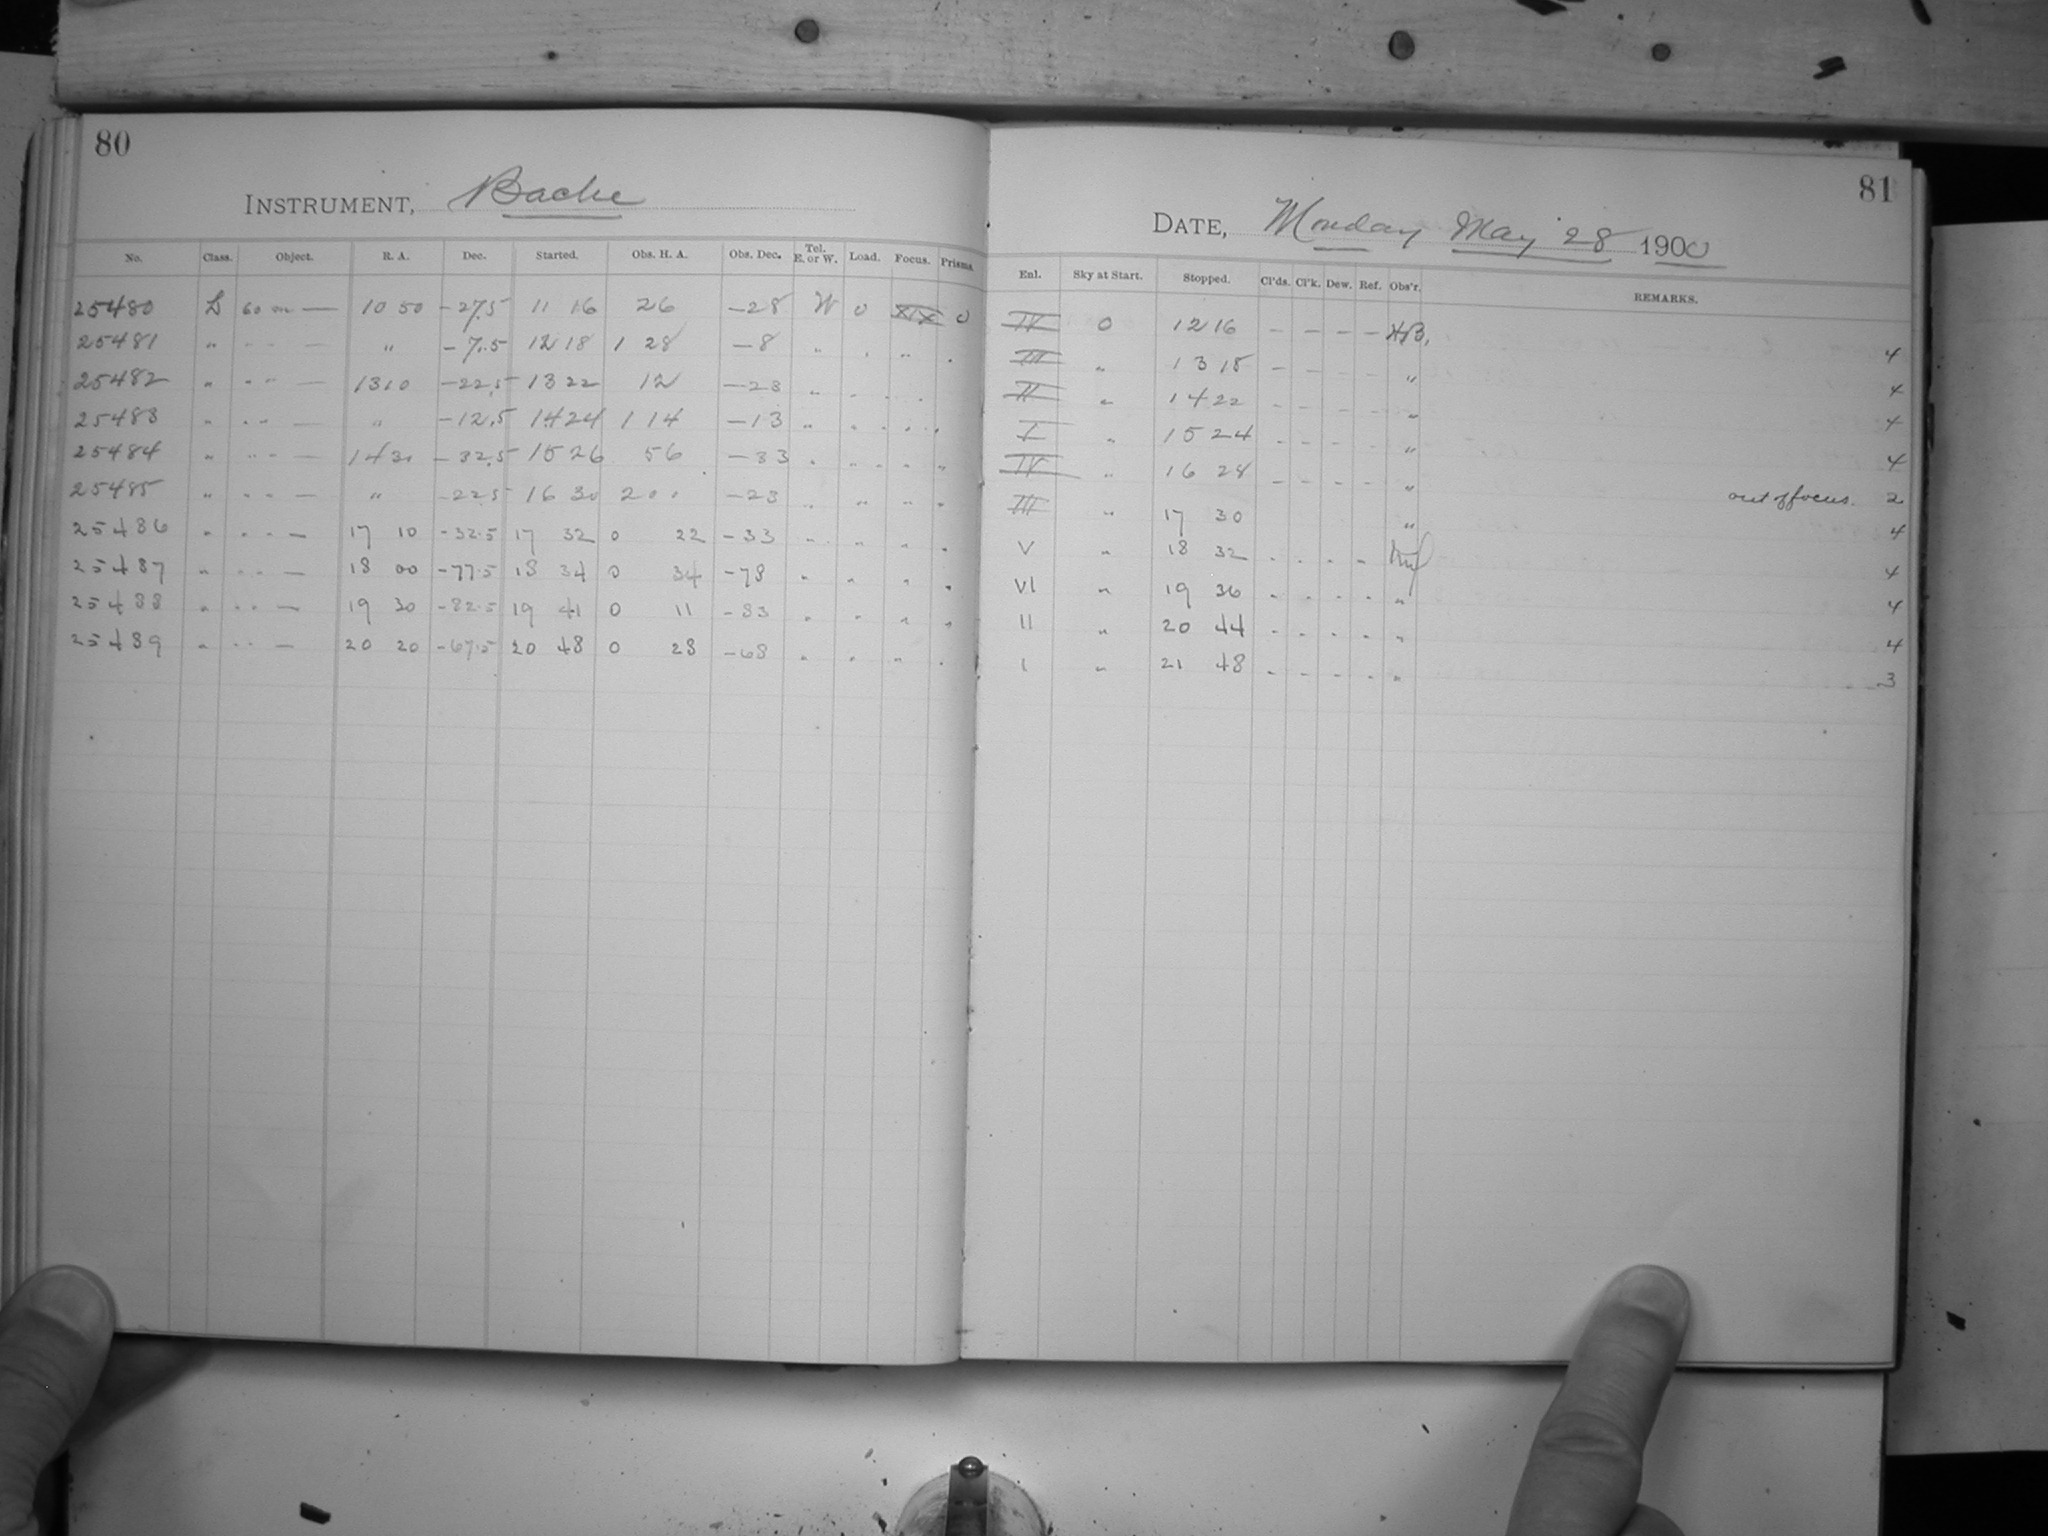 80
INSTRUMENT, Bache
No. Class. Object. R. A. Dec. Started. Obs. H. A. Obs. Dec. Tel. E. or W. Load. Focus. Prisms.
25480 L 60 m — 10 50 -27.5 11 16 26 -28 W 0 XIX 0
25481 " " " — " -7.5 12 18 1 28 -8 " " " "
25482 " " " — 13 10 -22.5 13 22 12 -23 " " " "
25483 " " " — " -12.5 14 24 1 14 -13 " " " "
25484 " " " — 14 30 -32.5 15 26 56 -33 " " " "
25485 " " " — " -22.5 16 30 2 00 -23 " " " "
25486 " " " — 17 10 -32.5 17 32 0 22 -33 " " " "
25487 " " " — 18 00 -77.5 18 34 0 34 -78 " " " "
25488 " " " — 19 30 -82.5 19 41 0 11 -83 " " " "
25489 " " " — 20 20 -67.5 20 48 0 28 -68 " " " "
81
DATE, Monday May 28 1900
Enl. Sky at Start. Stopped. Cl'ds. Cl'k. Dew. Ref. Obs'r. REMARKS.
IV 0 12 16 - - - - 4
III " 13 18 - - - - " 4
II " 14 22 - - - - " 4
I " 15 24 - - - - " 4
IV " 16 28 - - - - " out of focus. 2
III " 17 30 " 4
V " 18 32 - - - - 4
VI " 19 36 - - - - " 4
II " 20 44 - - - - " 4
I " 21 48 - - - - " 3